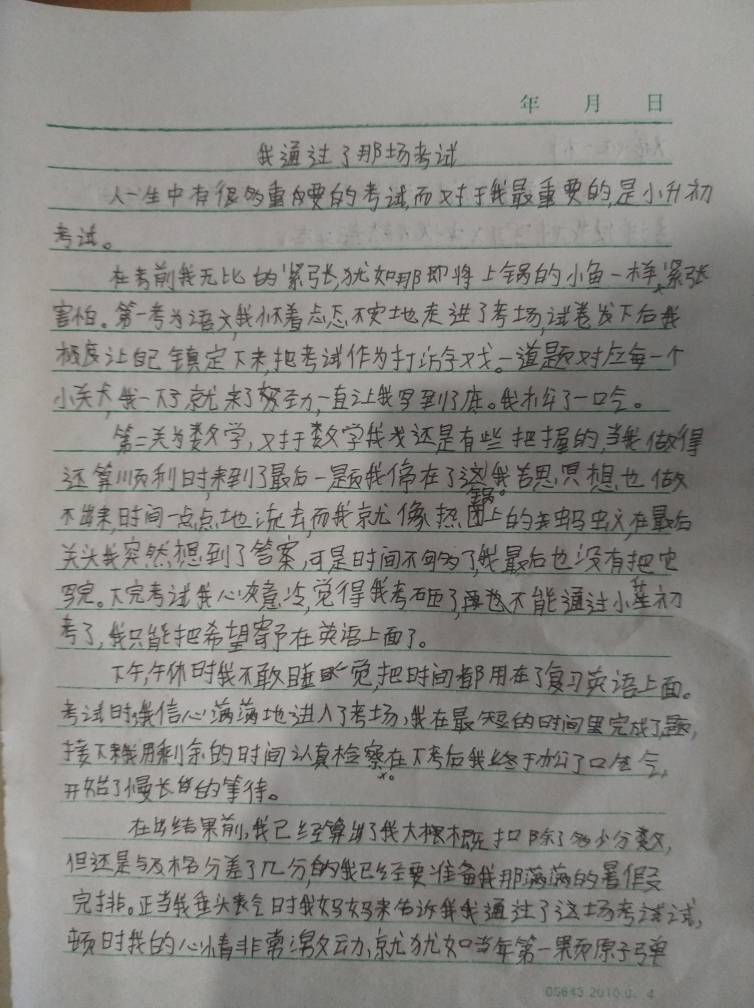 年 月 日
我通过了那场考试
人一生中有很多重要的考试,而对于我最重要的,是小升初
考试。
在考前我无比的紧张,犹如那即将上锅的小鱼一样,紧张
害怕。第一考为语文,我怀着忐忑不安地走进了考场,试卷发下后我
极度让自己镇定下来,把考试作为打游戏。一道题对应每一个
小关卡,我一下子就来了努劲,一直让我写到了底。我松了一口气。
第二关为数学,对于数学我还是有些把握的,当我做得
还算顺利时,来到了最后一题我停在了这,我苦思冥想也做
不出来,时间一点点地流去,而我就像热锅上的蚂蚁,在最后
关头我突然想到了答案,可是时间不够了,我最后也没有把它
写完。下完考试我心灰意冷,觉得我考砸了,再也不能通过小升初
考了,我只能把希望寄予在英语上面了。
下午,午休时我不敢睡觉,把时间都用在了复习英语上面。
考试时,我信心满满地进入了考场,我在最短的时间里完成了题,
接下来我用剩余的时间认真检察在下考后我终于松了口生气,
开始了慢长的等待。
在出结果前,我已经算出了我大概扣除了多少分数,
但还是与及格分差了几分,的我已经要准备我那满满的暑假
完排。正当我垂头丧气时我妈妈来告诉我我通过了这场考试,
顿时我的心情非常激动,就犹如当年第一颗原子弹
05643 2010.6. 4